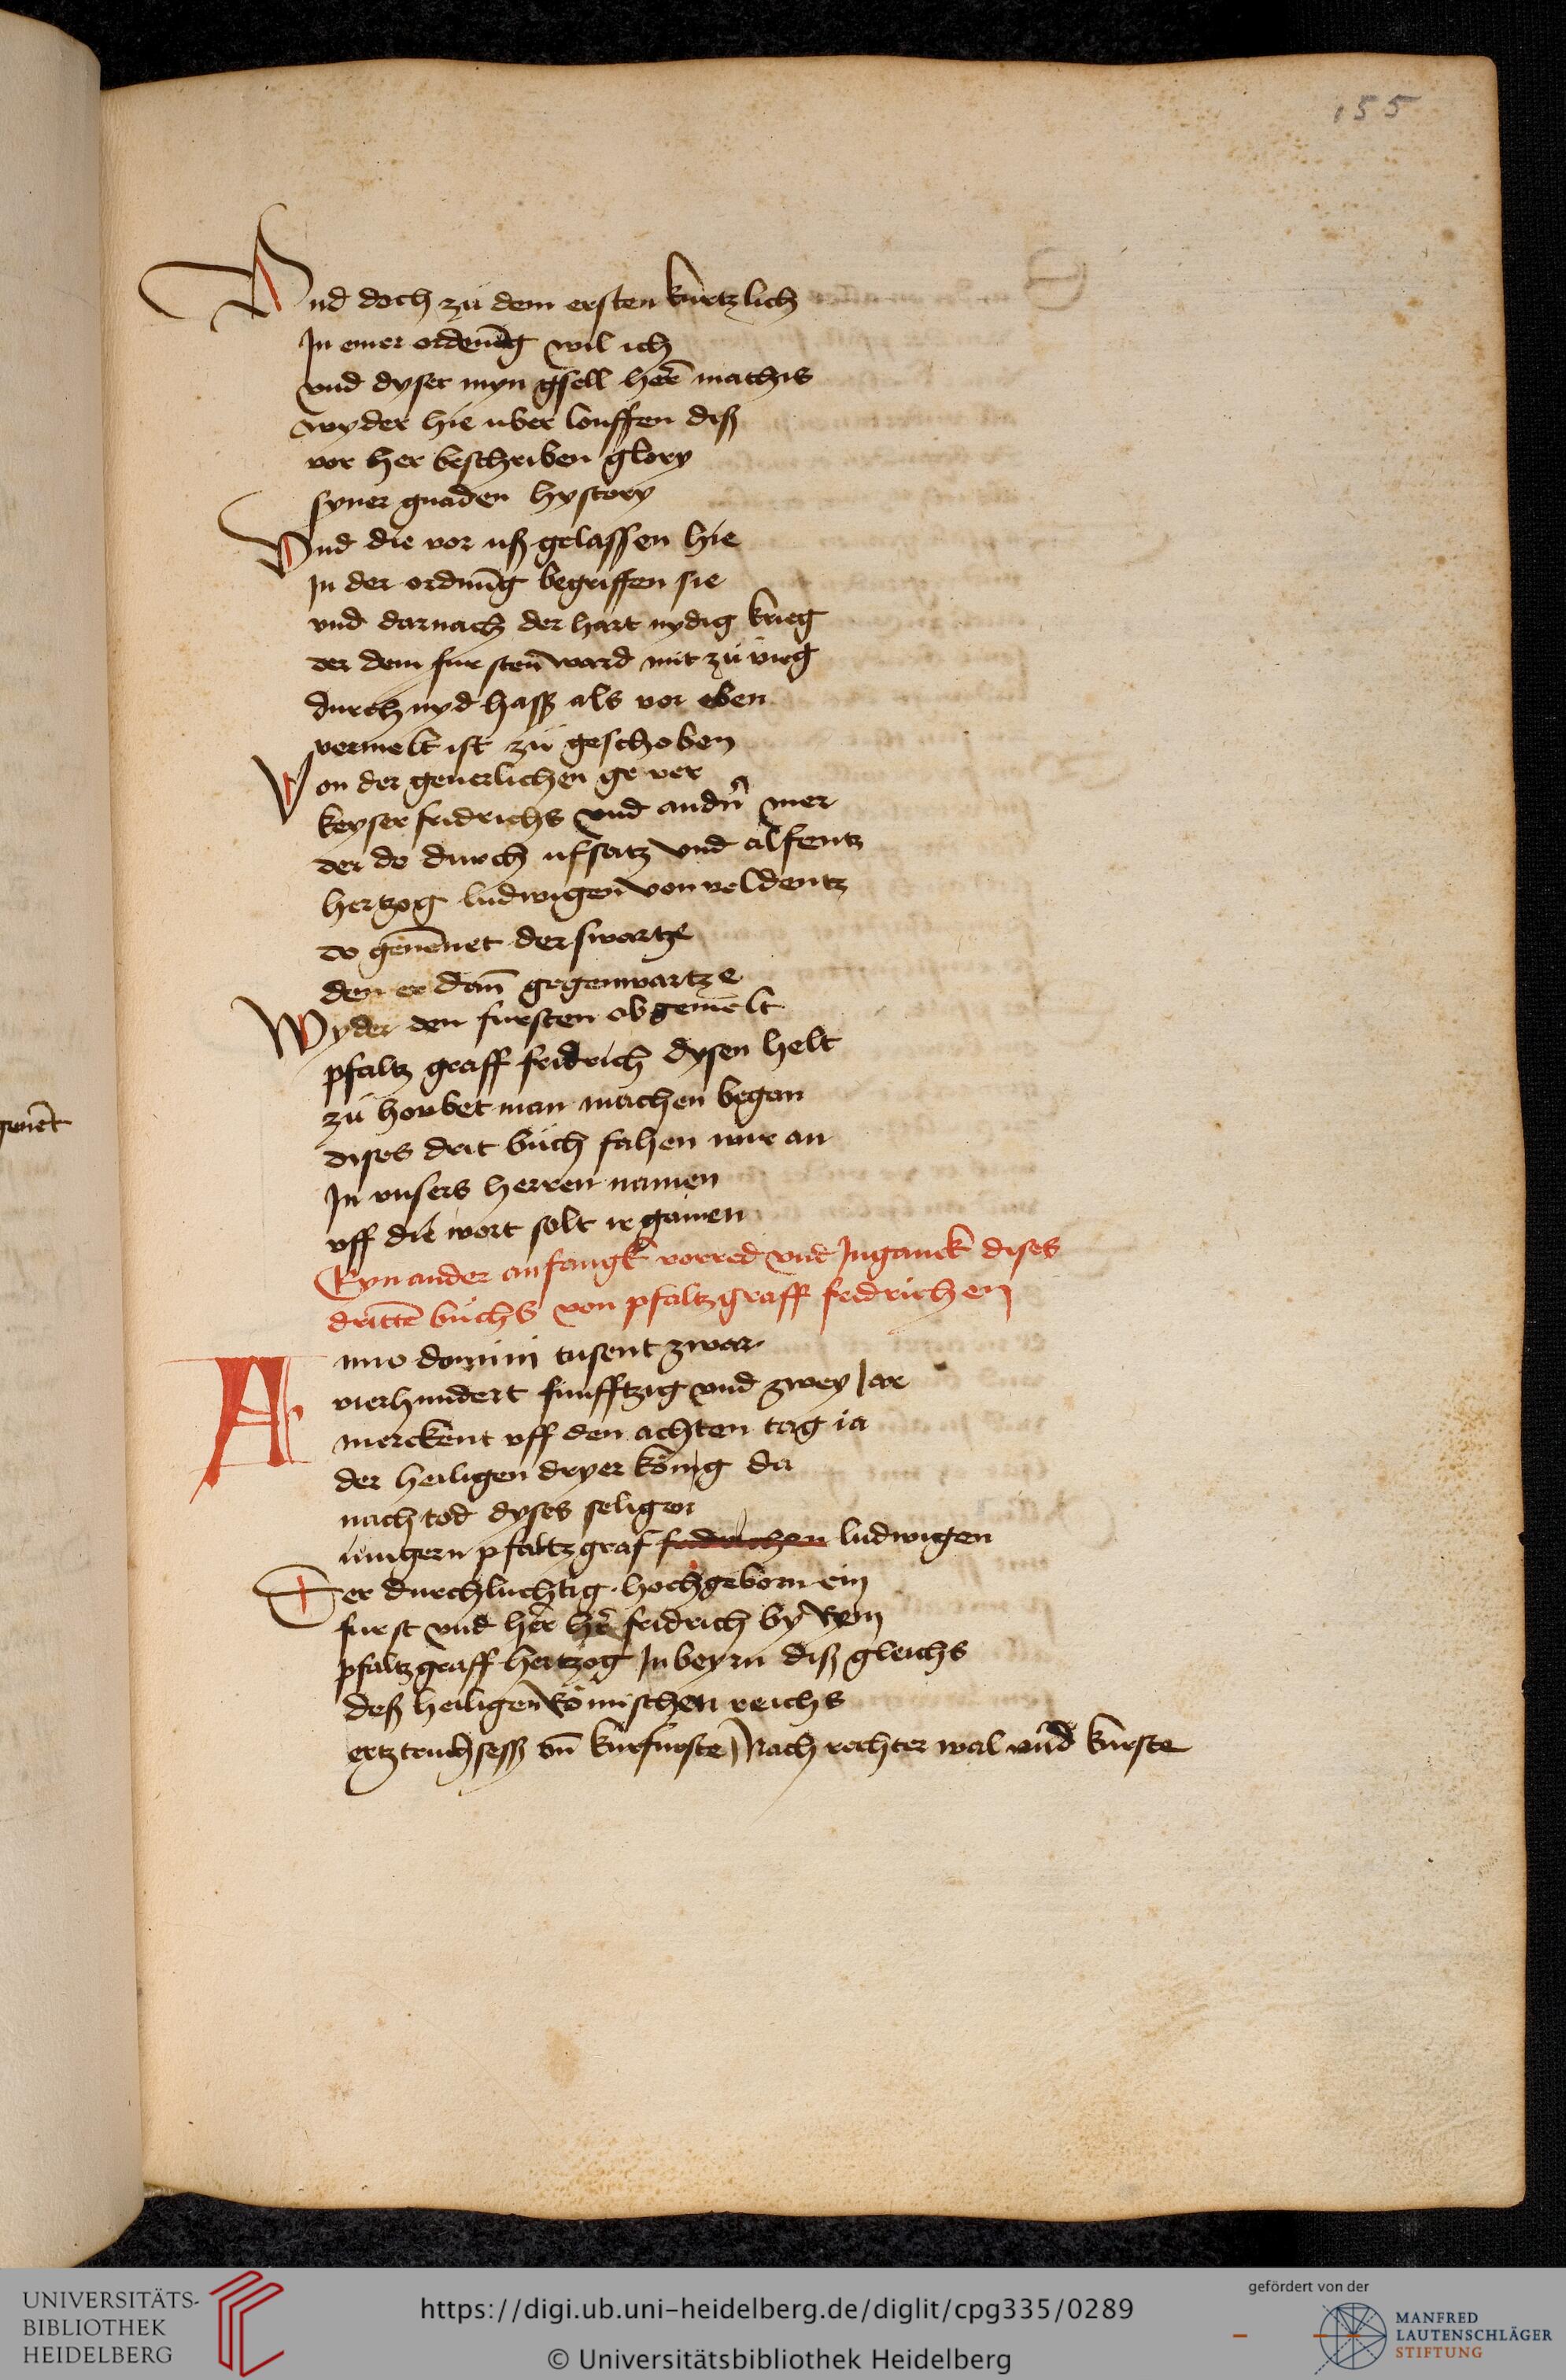 155
Vnd doch zů dem ersten kurtzlich
In einer ordenūg wil ich
vnd dyser myn gsell herr̄ mathis
wyder hie uber louffen diß
vor her beschriben glory
syner gnaden hystory
Vnd die vor uß gelassen hie
In der ordnūg begriffen sie
vnd darnach der hart nydig krieg
der dem fursten ward mit zů
durch nyd hasß als vor eben
vermelt ist zů geschoben
Von der geuerlichen ge ver
keyser fridrichs vnd andn̄ mer
der do durch ufsatz vnd alfentz
hertzog ludwigen von veldentz
do genēnet der swartze
den er dan̄ gegenwartze
Wyder den fursten ob gemelt
pfaltz graff fridrich dysen helt
zů houbet man machen began
dises drit bůch fahen wir an
In vnsers herren namen
vff die wort solt ir gamen
Eyn ander anfangk vorred vnd Inganck dises
dritt̄e bůchs von pfaltzgraff fridrichen
Anno domini tusent zwar
vierhundert funfftzig vnd zwey Jar
merckent vff den achten tag ia
der heiligen dryer kõnig da
nach tod dyses seligen
iungern pfaltzgraf fridrichen ludwigen
Der durchluchtig hochgeborn ein
furst vnd her̄ her̄ fridrich by Ryn
pfaltzgraff hertzog In beyrn diß gleichs
deß heiligen Rõmischen reichs
ertztruchsesß vn̄ kurfurste Nach rechter wal vnd kurste
genēt
UNIVERSITÄTS-
BIBLIOTHEK
HEIDELBERG
https://digi.ub.uni-heidelberg.de/diglit/cpg335/0289
© Universitätsbibliothek Heidelberg
gefördert von der
MANFRED
LAUTENSCHLÄGER
STIFTUNG